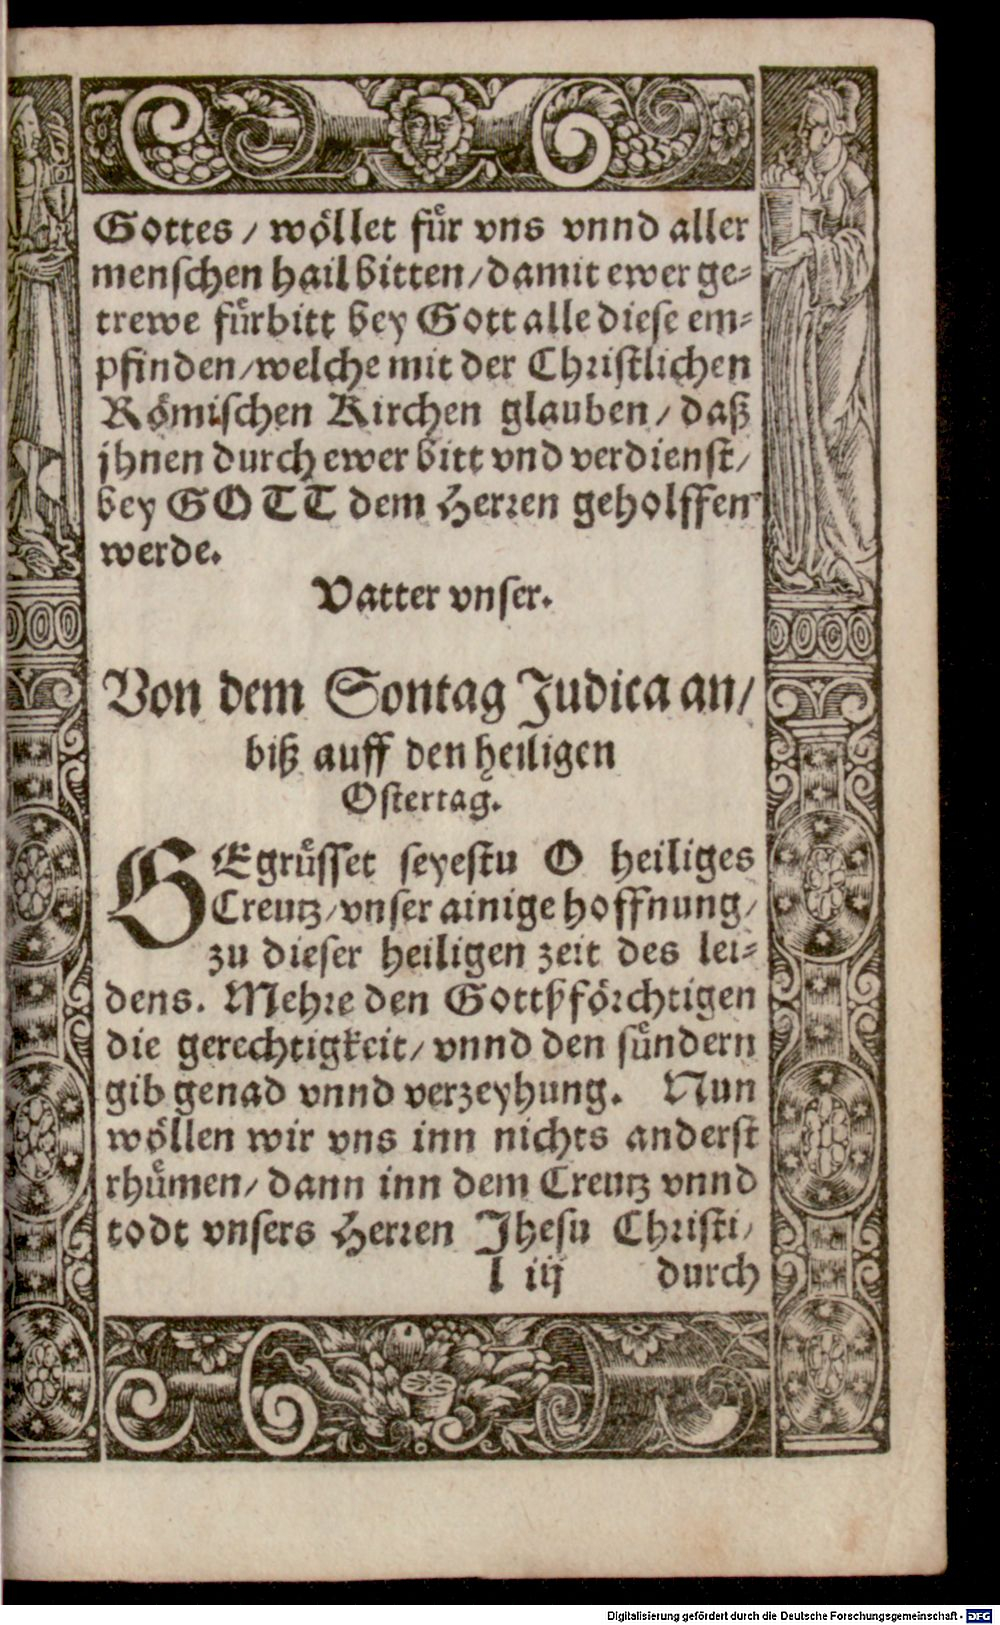 Gottes / wöllet für vns vnnd aller
menschen hail bitten / damit ewer ge⸗
trewe fürbitt bey Gott alle diese em⸗
pfinden / welche mit der Christlichen
Römischen Kirchen glauben / daß
jhnen durch ewer bitt vnd verdienst /
bey GOTT dem Herren geholffen
werde.
Vatter vnser.
Von dem Sontag Judica an /
biß auff den heiligen
Ostertag.
GEgrüsset seyestu O heiliges
Creutz / vnser ainige hoffnung /
zu dieser heiligen zeit des lei⸗
dens. Mehre den Gottßförchtigen
die gerechtigkeit / vnnd den sündern
gib genad vnnd verzeyhung. Nun
wöllen wir vns inn nichts anderst
rhümen / dann inn dem Creutz vnnd
todt vnsers Herren Jhesu Christi /
l iij durch
Digitalisierung gefördert durch die Deutsche Forschungsgemeinschaft - DFG